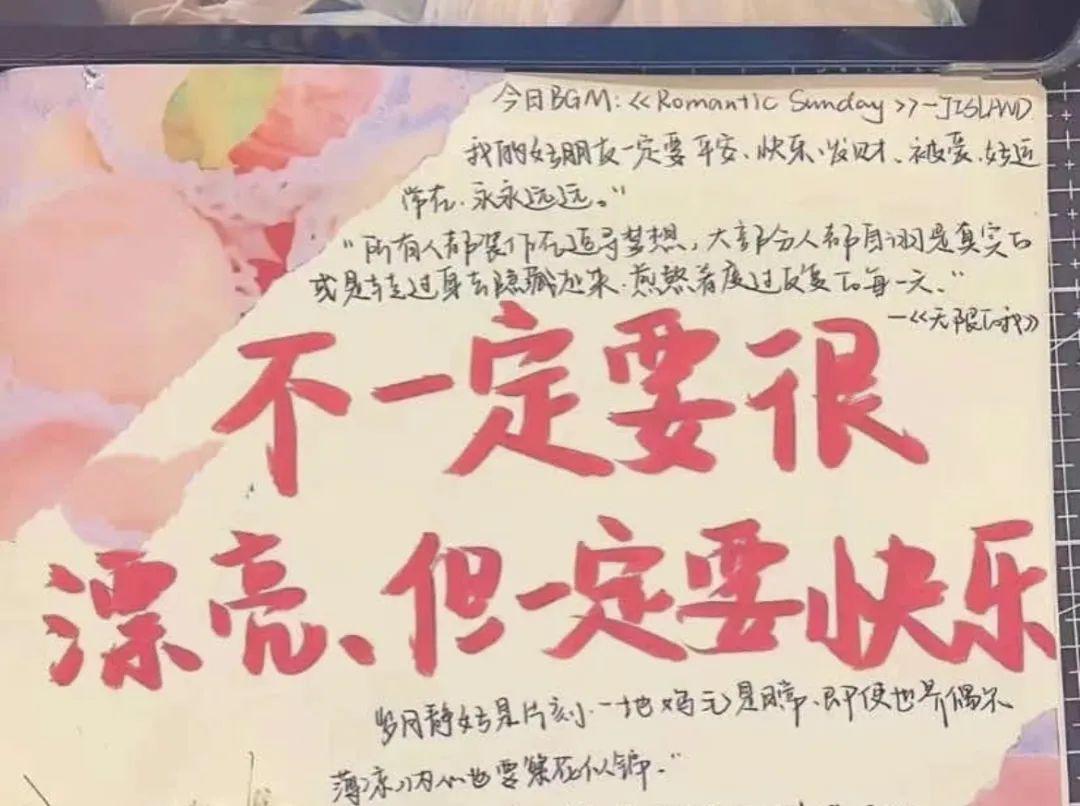 今日BGM:《Romantic Sunday》-JISLAND
我的好朋友一定要平安、快乐、发财、被爱、好运
常在、永永远远。”
“所有人都装作在追寻梦想，大部分人都自诩是真实的
或是转过身去隐藏起来、煎熬着度过反复的每一天。”
—《无限的我》
不一定要很
漂亮、但一定要快乐
岁月静好是片刻、一地鸡毛是日常、即便世界偶尔
薄凉、内心也要繁花似锦。”